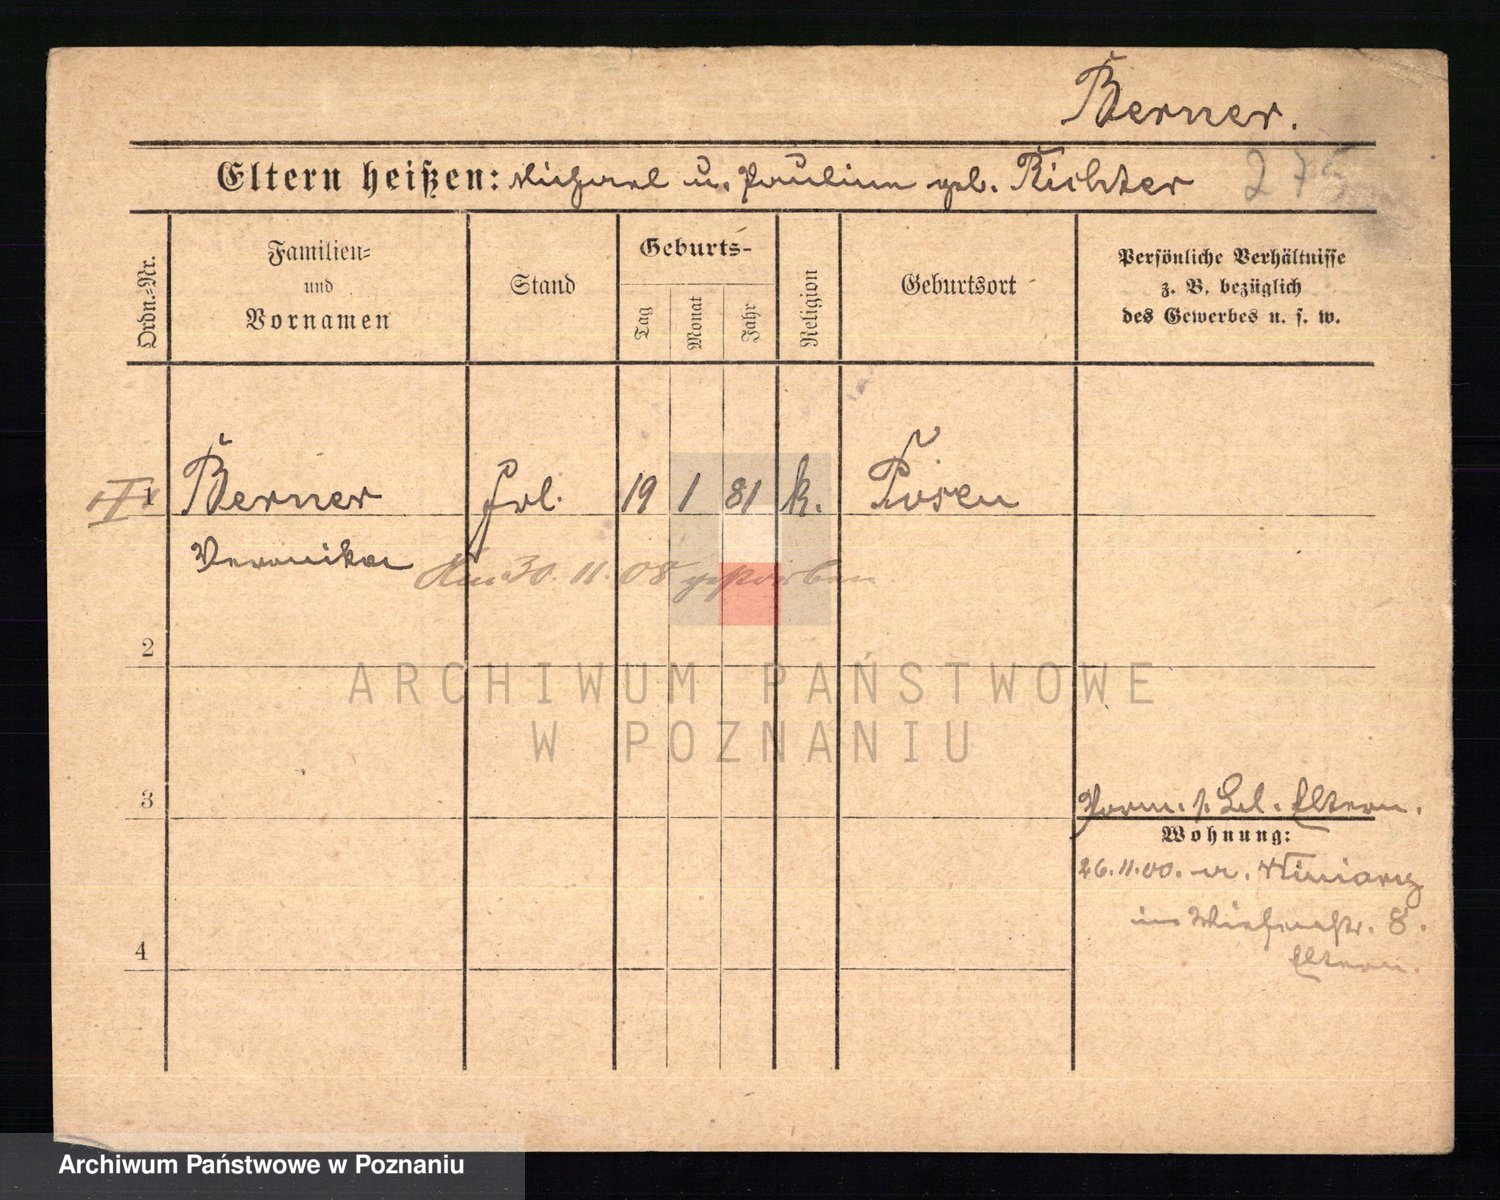 Berner.
Eltern heißen: Michael u. Pauline geb. Richter 275
Ordn.=Nr.
Familien=
und
Vornamen
Stand
Geburts-
Tag
Monat
Jahr
Religion
Geburtsort
Persönliche Verhältnisse
z. B. bezüglich
des Gewerbes u. s. w.
1 Berner Frl. 19 1 81 k. Posen
Veronika Am 30.11.08 gestorben
2
ARCHIWUM PAŃSTWOWE
W POZNANIU
3
Eltern.
Wohnung:
26.11.00. Winiary
Wiesenstr. 8.
Eltern.
4
Archiwum Państwowe w Poznaniu